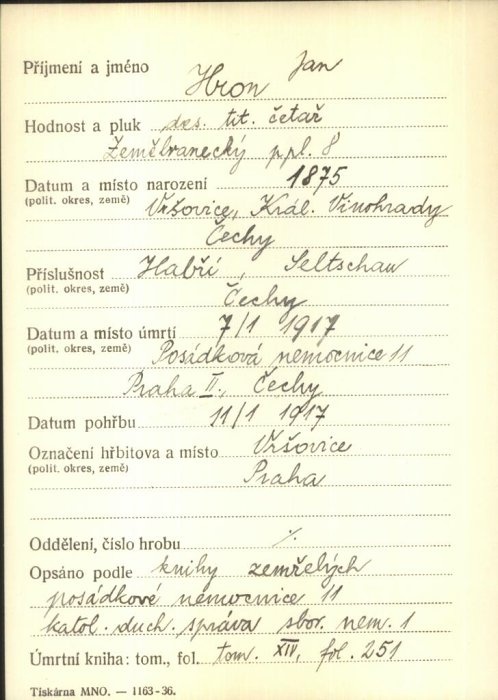 Příjmení a jméno Hron Jan
Hodnost a pluk des. tit. četař
Zeměbranecký p pl. 8
Datum a místo narození 1875
(polit. okres, země) Vršovice, Král. Vinohrady
Čechy
Příslušnost Habří, Seltschau
(polit. okres, země) Čechy
Datum a místo úmrtí 7/1 1917
(polit. okres, země) Posádková nemocnice 11
Praha II., Čechy
Datum pohřbu 11/1 1917
Označení hřbitova a místo Vršovice
(polit. okres, země) Praha
Oddělení, číslo hrobu %
Opsáno podle knihy zemřelých
posádkové nemocnice 11
katol. duch. správa sbor. nem. 1
Úmrtní kniha: tom., fol. tom. XIV, fol. 251
Tiskárna MNO. — 1163-36.